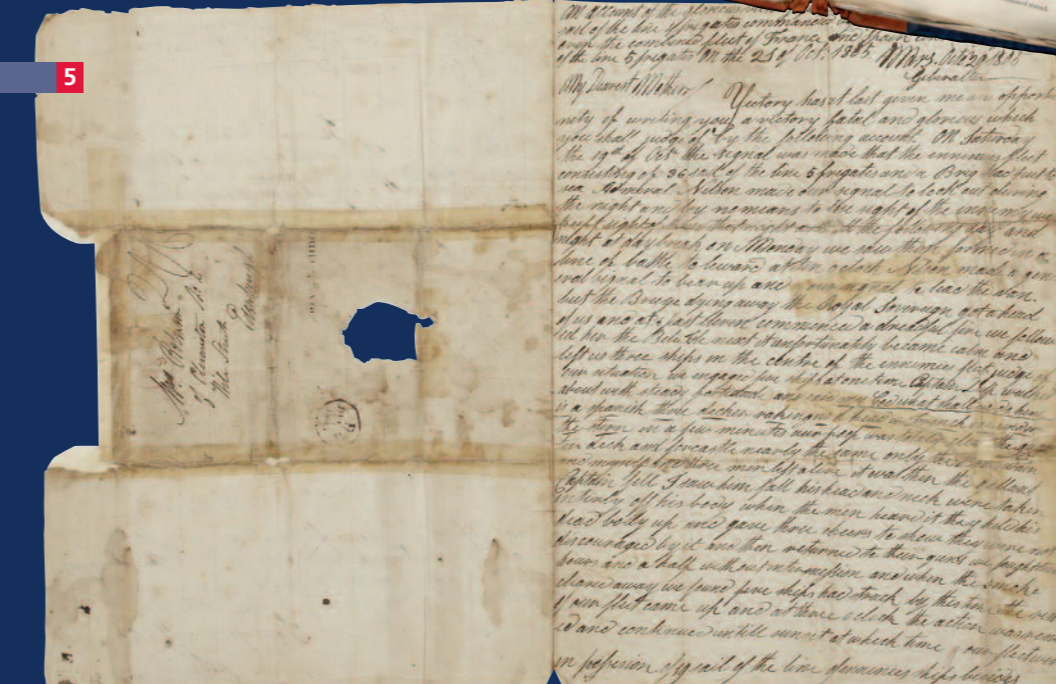 5
An account of the glorious
sail of the line & frigates commanded
over the combined fleet of France and Spain
of the line 5 frigates On the 21 of Oct. 1805. Mars. Octr 29 1805
Gibralter
My Dearest Mother
Victory has at last given me an opportu
nity of writing you, a victory fatal and glorious which
you shall judge of by the following account. On Saturday
the 19th of Oct the signal was made that the ennimies fleet
consisting of 36 sail of the line 5 frigates and a Brig had put to
sea Admiral Nilson made our signal to look out during
the night and by no means to the sight of the ennimy we
kept sight of them that night and the following day and
night at daybreak on Monday we saw them formed in a
line of battle to leward at ten oclock Nilson made a gen
eral signal to bear up and our signal to lead the van.
but the Breeze dying away the Royal Sovereign got ahead
of us and at past Eleven commence a dreadful fire we follow
ed her the Belisle next it unfortunately became calm and
left us three ships in the centre of the ennimies fleet judge of
our situation we engaged five ships at one time Captain Duff walked
about with steady fortitude and said my God what shall we do here
is a spanish three decker raking us a head a french one under
the stern in a few minutes our poop was cleared the quar
ter deck and forcastle nearly the same only the
and three men left alive it was then the gallant
Captain fell I saw him fall his head and neck were taken
intirely off his body when the men heard it they held his
dead body up and gave three cheers to show they were not
discouraged by it and then returned to their guns we fought two
hours and a half without intermission and when the smoke
cleared away we found five ships had struck by this time the rear
of our fleet came up and at three oclock the action was renew
ed and continued untill sunset at which time our fleet were
in possession of 19 sail of the line ennimies ships besides
Mrs Robinson
Edinburgh